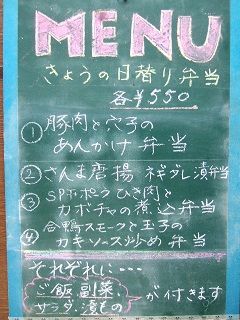 MENU
きょうの日替り弁当
各¥550
① 豚肉と穴子の
あんかけ弁当
② さんま唐揚 ネギダレ漬弁当
③ SPポークひき肉と
カボチャの煮込弁当
合鴨スモークと玉子の
④ カキソース炒め弁当
それぞれに・・・・
ご飯、副菜、
サラダ、漬もの
が付きます